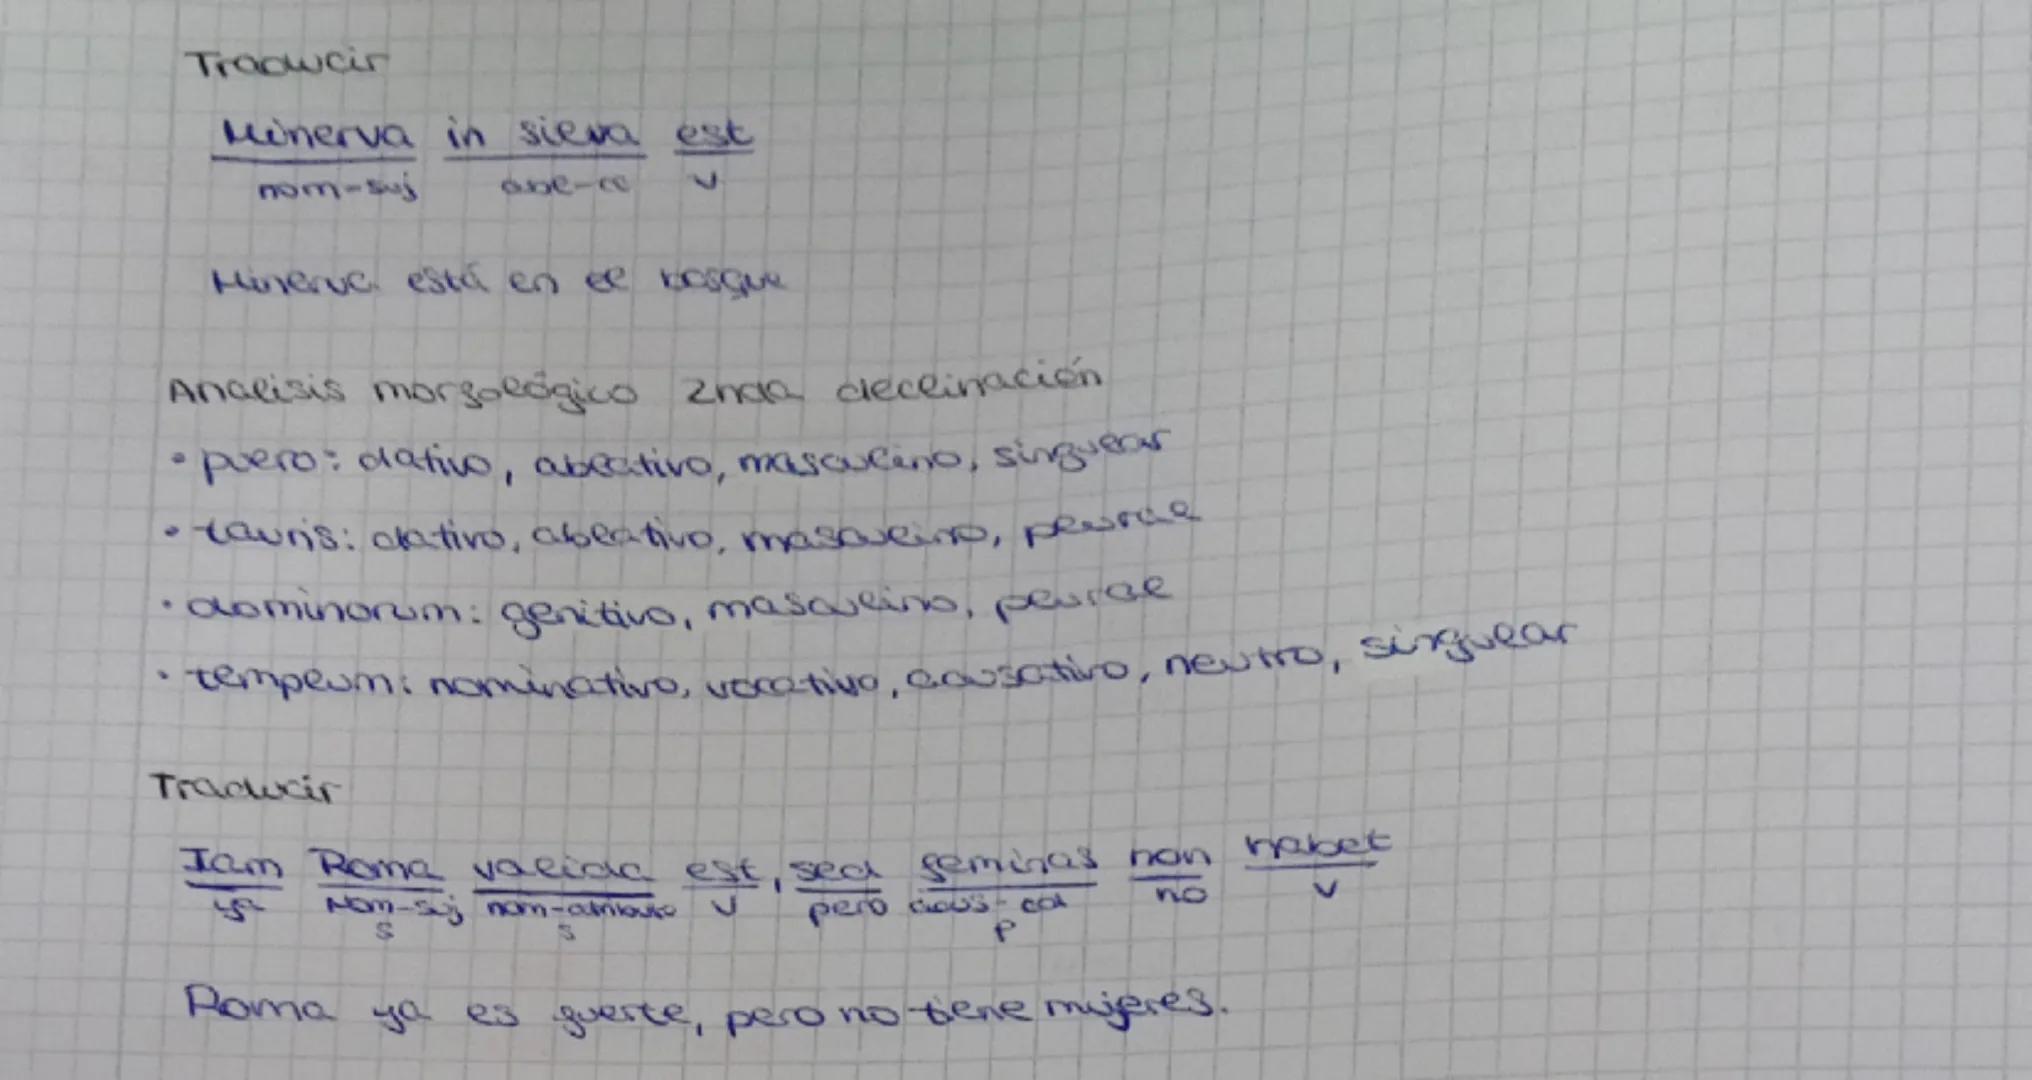 Traducir
Minerva in silva est
nom-suj abl-cc v
Minerva está en el bosque
Analisis morfológico 2nda declinación
• puero: dativo, ablativo, masculino, singular
• tauris: dativo, ablativo, masculino, plural
• dominorum: genitivo, masculino, plural
• templum: nominativo, vocativo, acusativo, neutro, singular
Traducir
Iam Roma valida est, sed feminas non habet
ya Nom-suj nom-atributo v pero acus-cd no v
s s p
Roma ya es fuerte, pero no tiene mujeres.